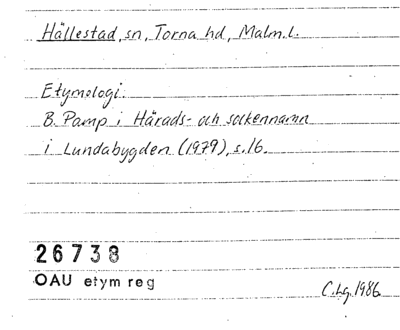 Hällestad, sn, Torna hd, Malm.l.
Etymologi.
B. Pamp i Härads- och sockennamn
i Lundabygden (1979), s.16.
26738
OAU etym reg
C.Lg. 1986